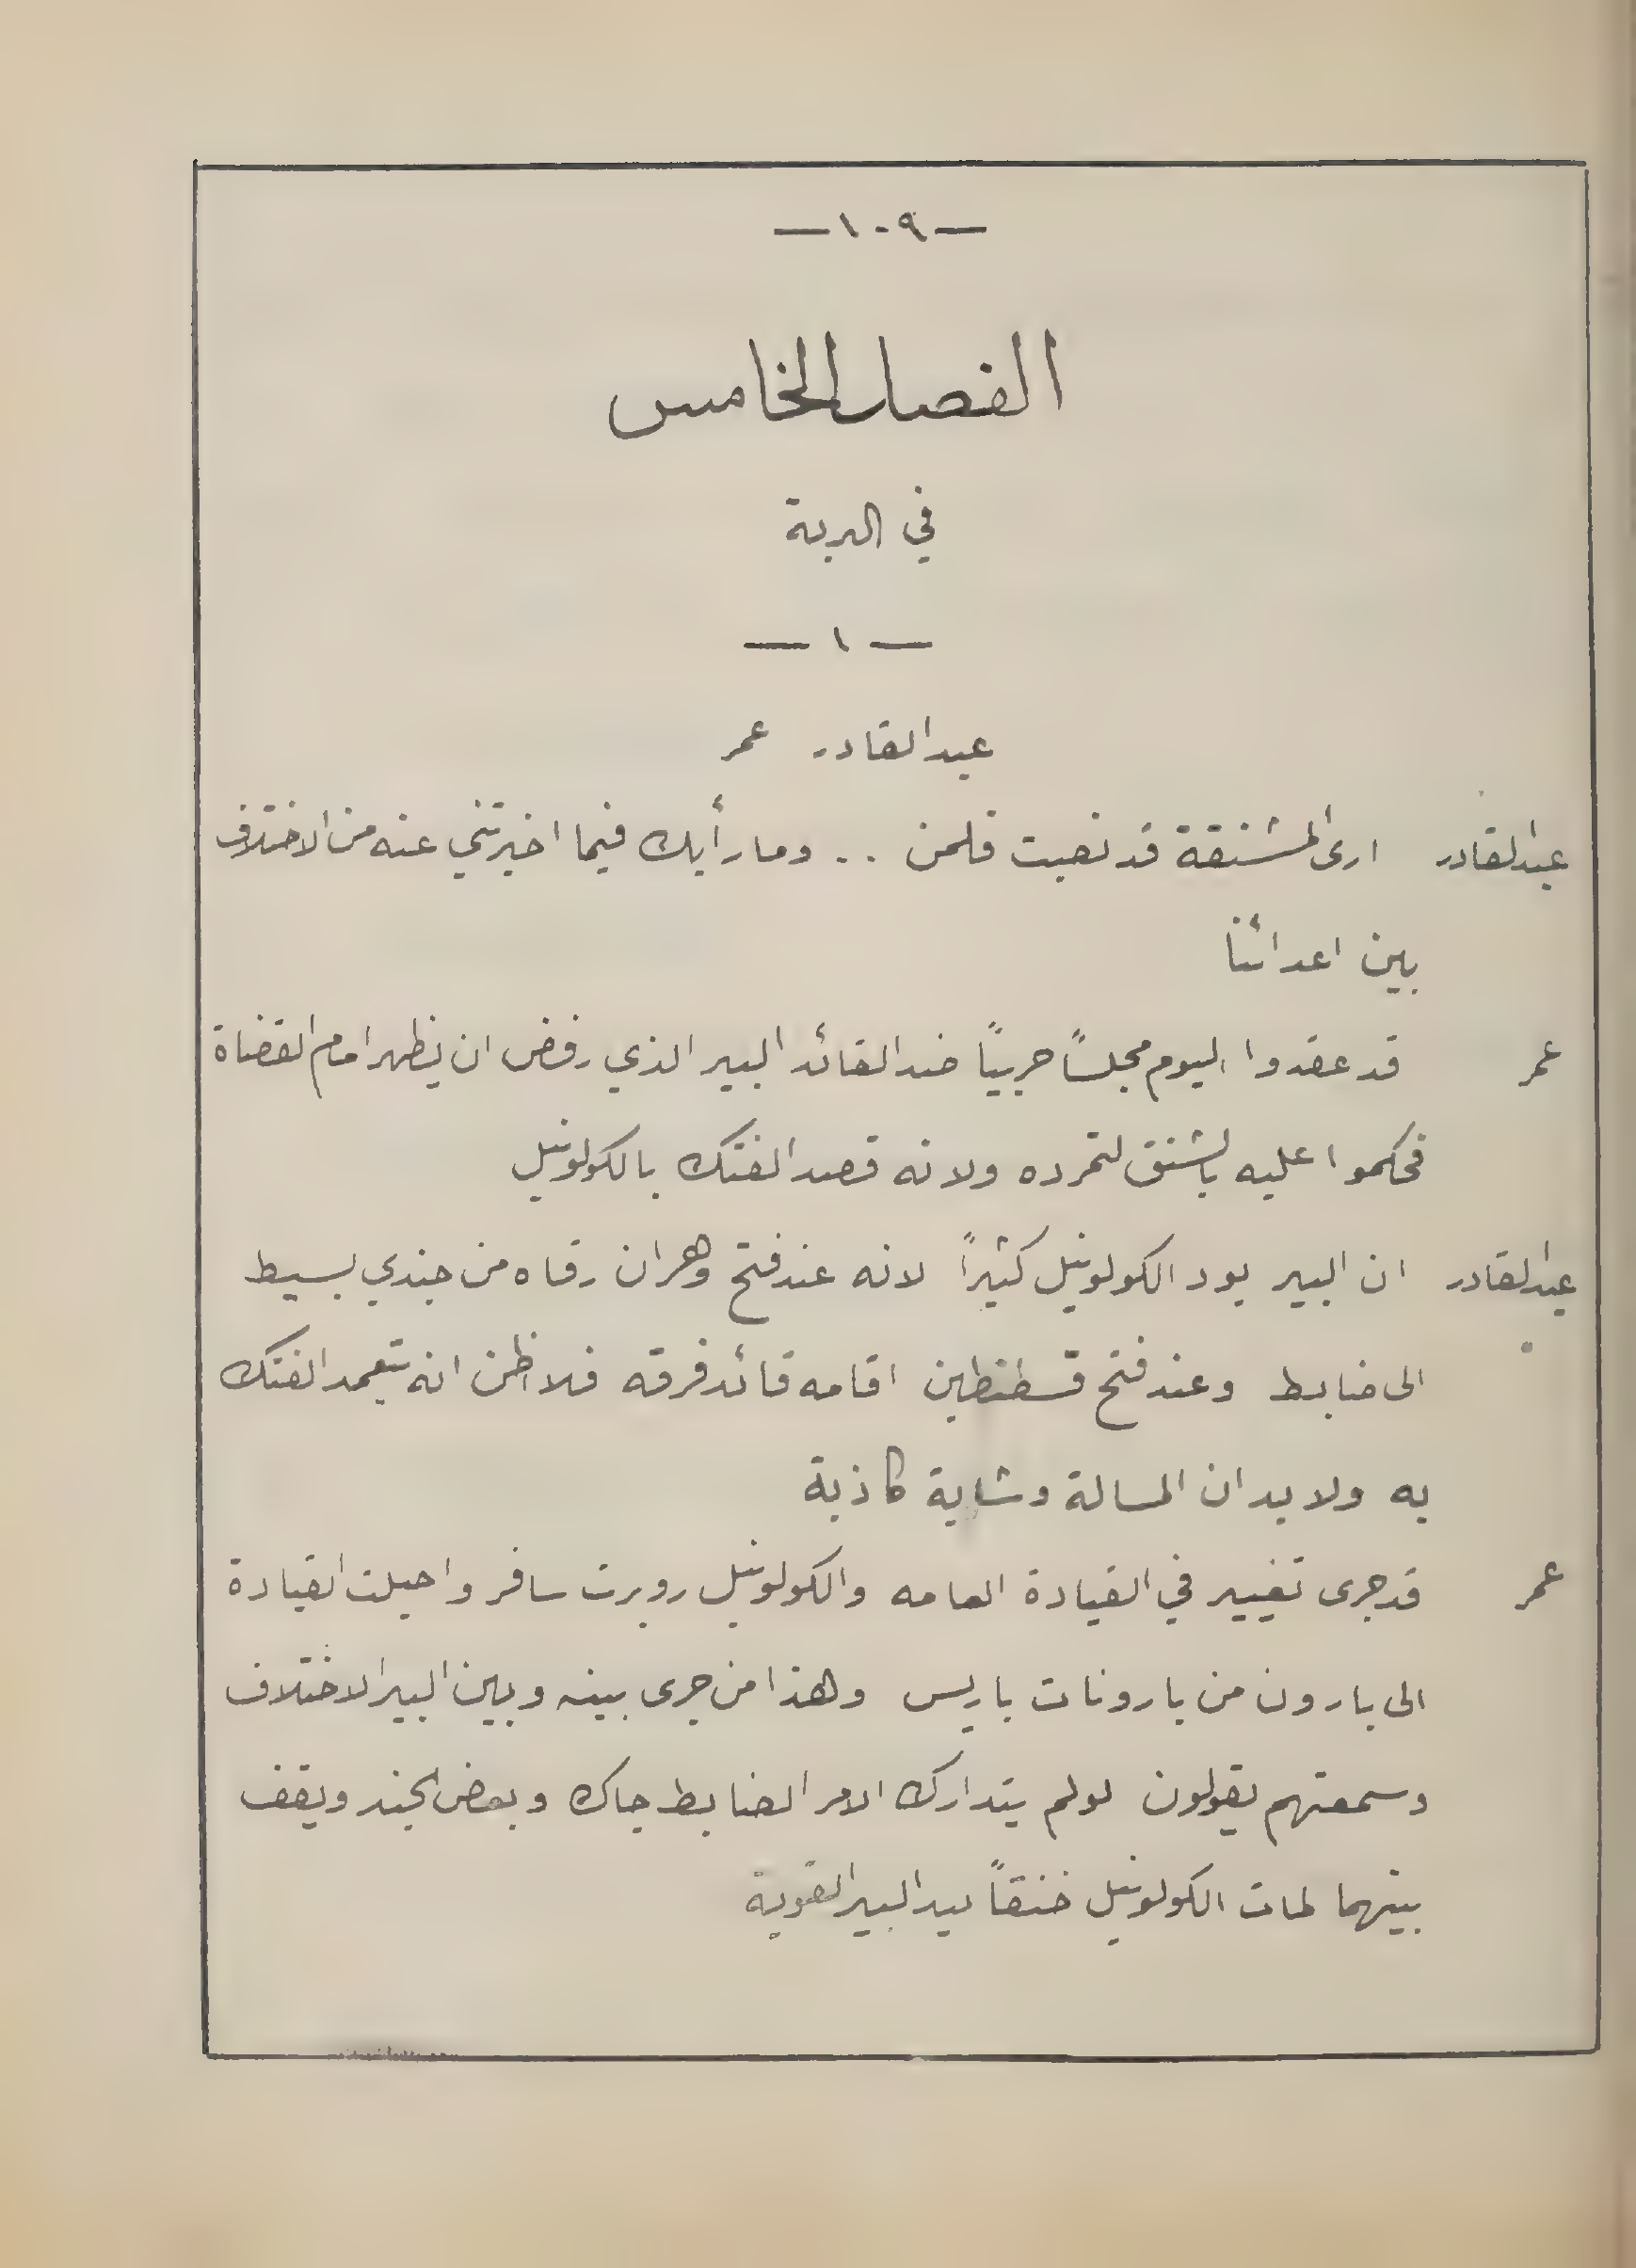 —١٠٩—
الفصل الخامس
في البرية
— ١ —
عبد القادر عمر
عبد القادر ارى المشنقة قد نصبت فلمن .. وما رأيك فيما اخبرتني عنه من الاختلاف
بين اعدائنا
عمر قد عقدوا اليوم مجلسًا حربيًا ضد القائد البير الذي رفض ان يظهر امام القضاة
فحكموا عليه بالشنق لتمرده ولانه قصد الفتك بالكولونيل
عبد القادر ان البير يود الكولونيل كثيرًا لانه عند فتح وهران رقاه من جندي بسيط
الى ضابط وعند فتح قسطنطين اقامه قائد فرقه فلا اظن انه يتعمد الفتك
به ولا بد ان المسالة وشاية كاذبة
عمر قد جرى تغيير في القيادة العامه والكولونيل روبرت سافر واحيلت القيادة
الى بارون من بارونات باريس وهذا من جرى بينه وبين البير الاختلاف
وسمعتهم يقولون لو لم يتدارك الامر الضابط جاك وبعض الجند ويقف
بينهما لمات الكولونيل خنقاً بيد البير القوية